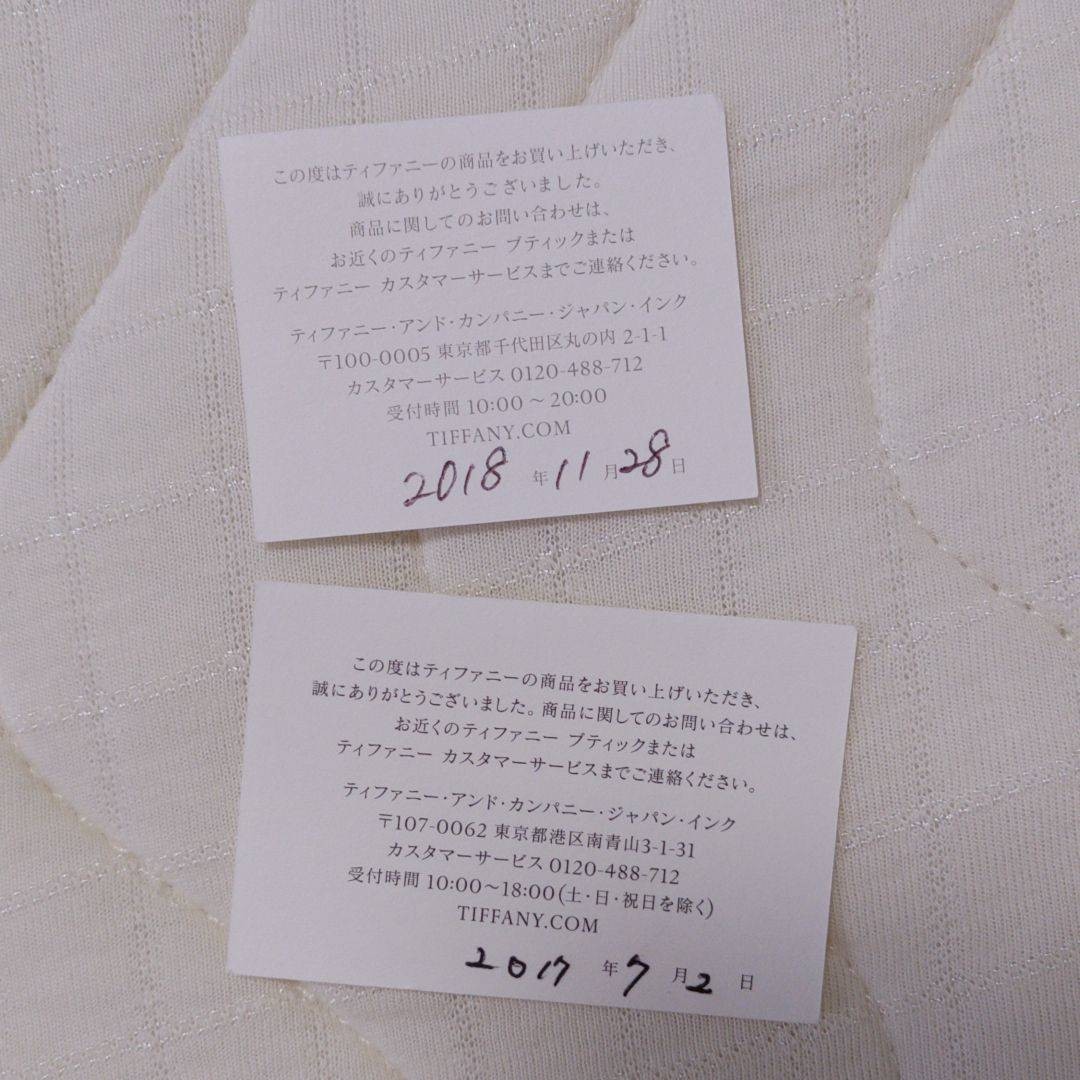 この度はティファニーの商品をお買い上げいただき、
誠にありがとうございました。
商品に関してのお問い合わせは、
お近くのティファニー ブティックまたは
ティファニー カスタマーサービスまでご連絡ください。
ティファニー・アンド・カンパニー・ジャパン・インク
〒100-0005 東京都千代田区丸の内 2-1-1
カスタマーサービス 0120-488-712
受付時間 10:00 〜 20:00
TIFFANY.COM
2018 年 11 月 28 日
この度はティファニーの商品をお買い上げいただき、
誠にありがとうございました。商品に関してのお問い合わせは、
お近くのティファニー ブティックまたは
ティファニー カスタマーサービスまでご連絡ください。
ティファニー・アンド・カンパニー・ジャパン・インク
〒107-0062 東京都港区南青山3-1-31
カスタマーサービス 0120-488-712
受付時間 10:00〜18:00(土・日・祝日を除く)
TIFFANY.COM
2017 年 7 月 2 日